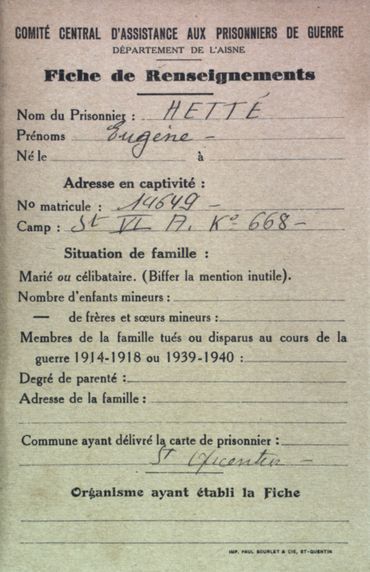 COMITÉ CENTRAL D'ASSISTANCE AUX PRISONNIERS DE GUERRE
DÉPARTEMENT DE L'AISNE
Fiche de Renseignements
Nom du Prisonnier : HETTE
Prénoms Eugène -
Né le à
Adresse en captivité :
No matricule : 14649 -
Camp : St VI A. Ko 668 -
Situation de famille :
Marié ou célibataire. (Biffer la mention inutile).
Nombre d'enfants mineurs :
— de frères et sœurs mineurs :
Membres de la famille tués ou disparus au cours de la
guerre 1914-1918 ou 1939-1940 :
Degré de parenté :
Adresse de la famille :
Commune ayant délivré la carte de prisonnier :
St Quentin -
Organisme ayant établi la Fiche
IMP. PAUL BOURLET & CIE, ST-QUENTIN